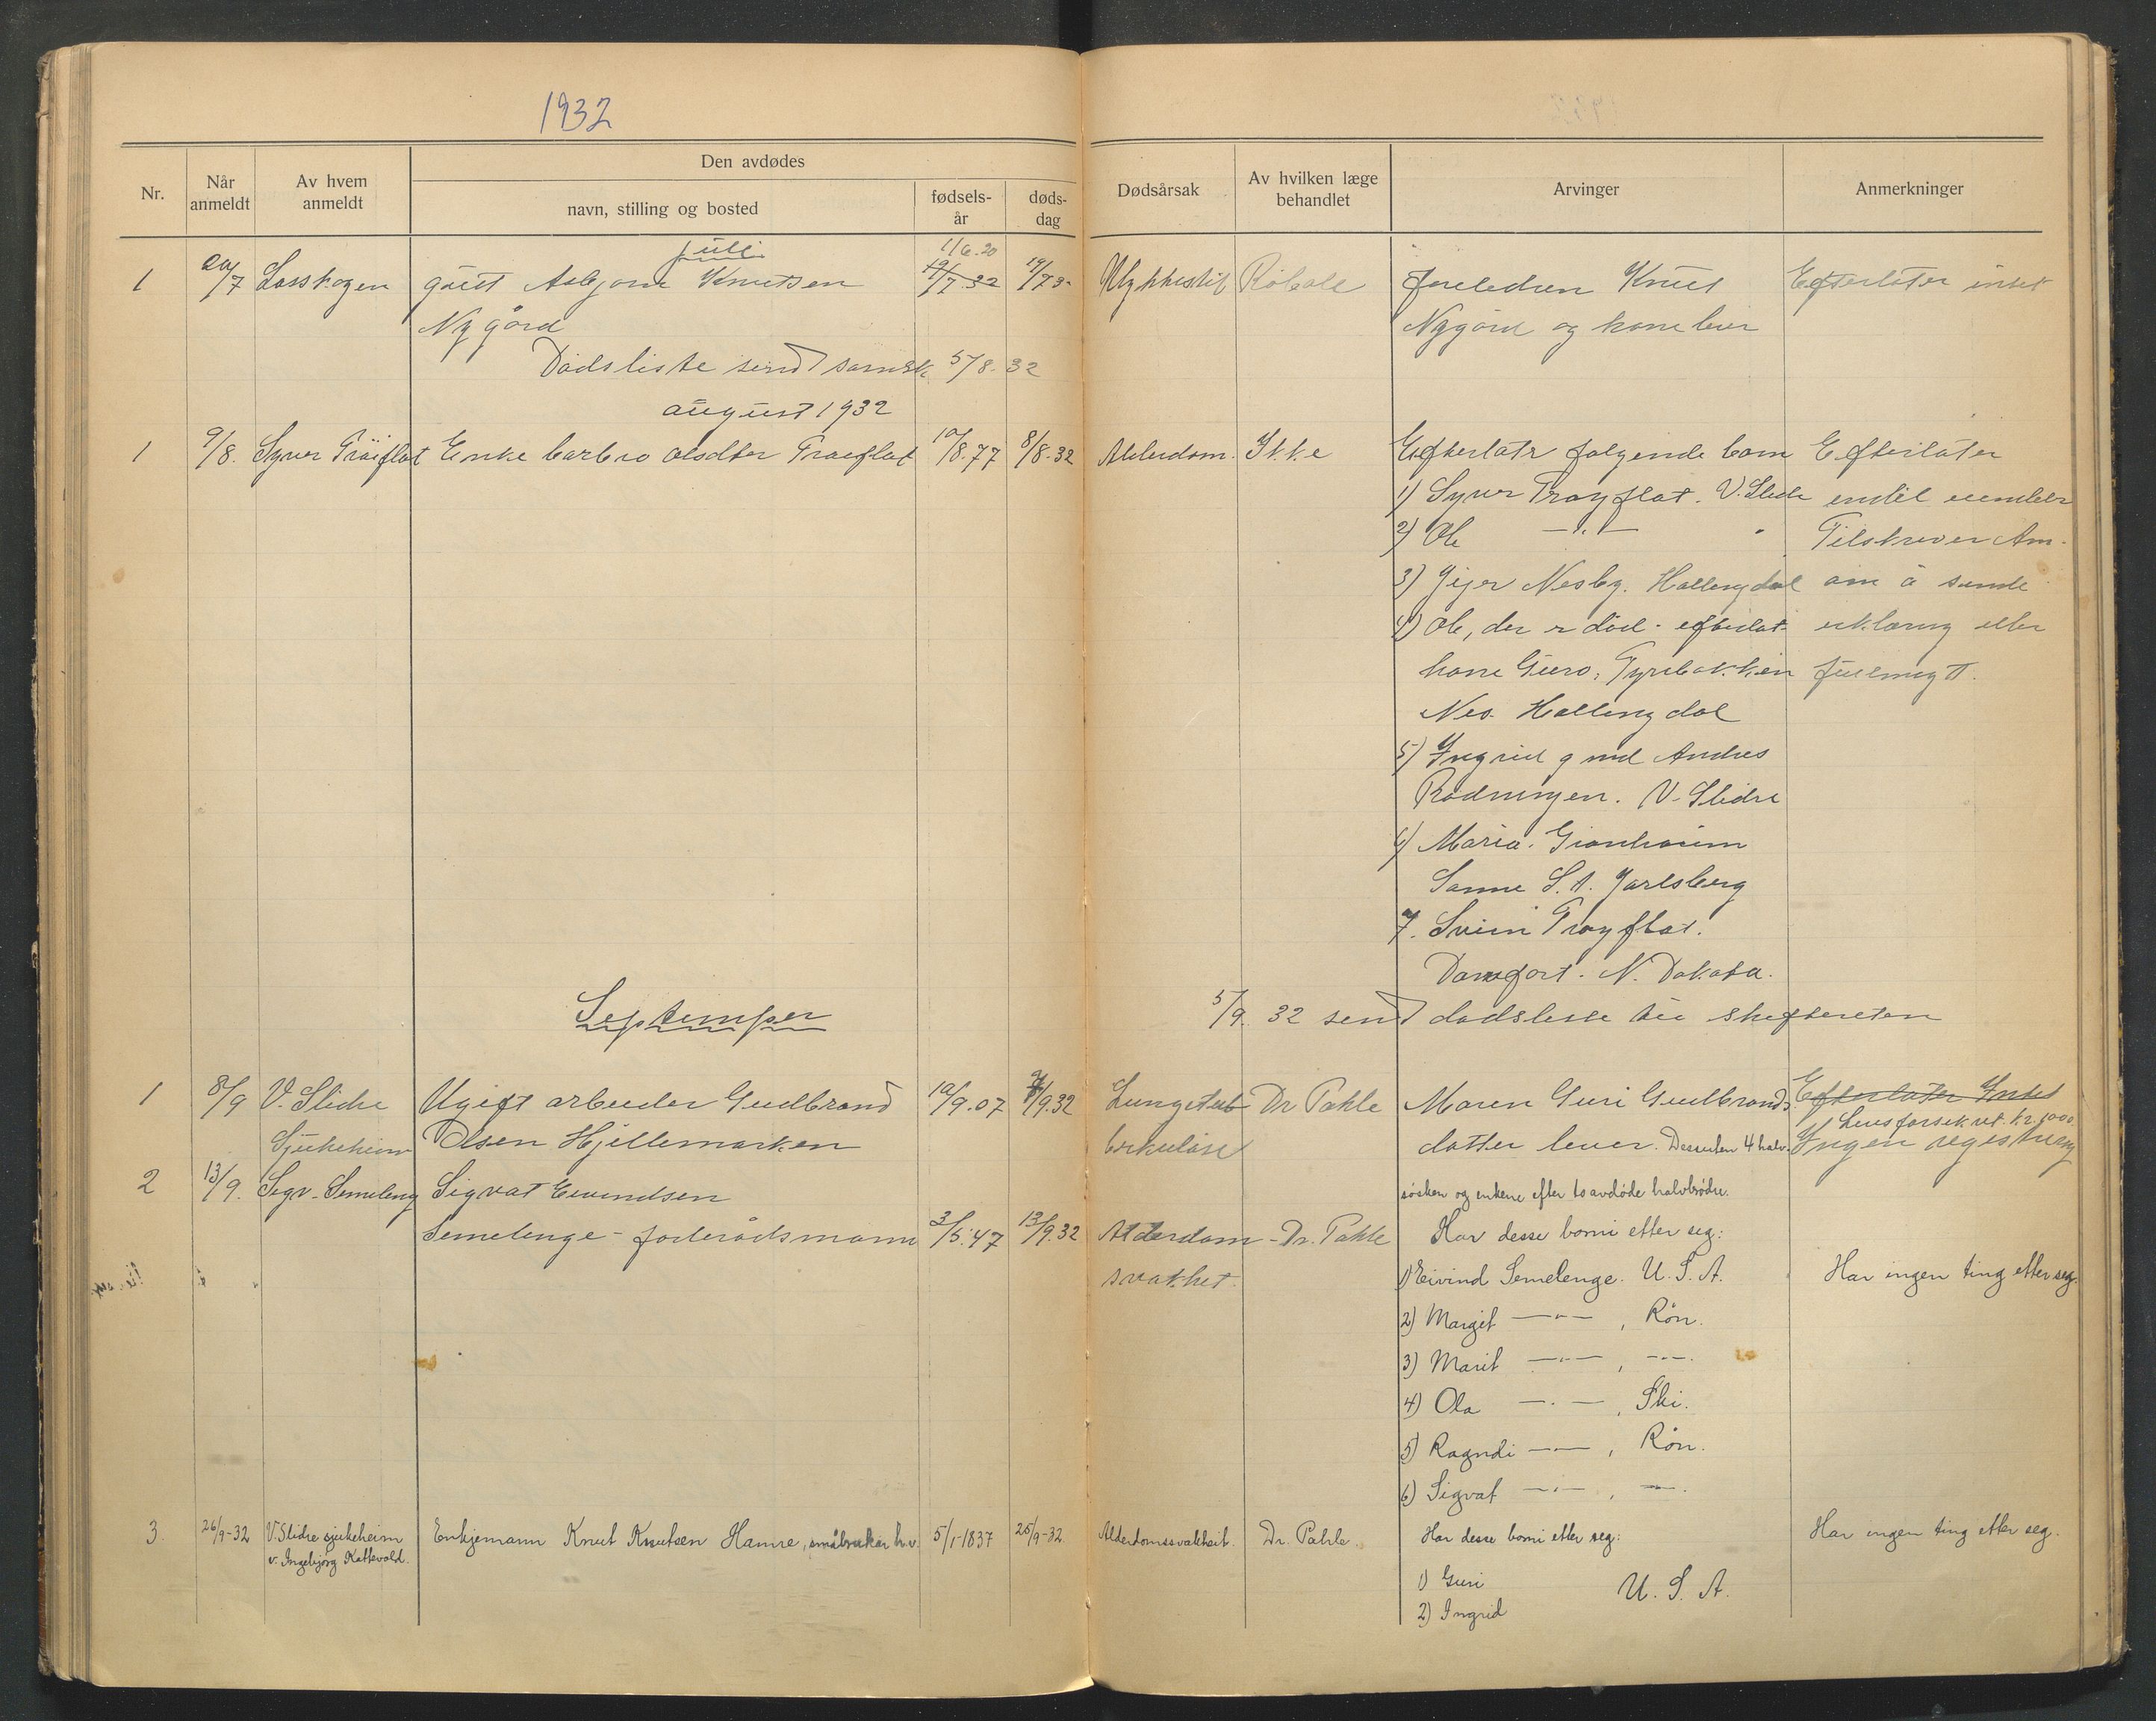 1932
Nr.
Når anmeldt
Av hvem anmeldt
Den avdødes
navn, stilling og bosted
fødsels-år
døds-dag
Dødsårsak
Av hvilken læge behandlet
Arvinger
Anmerkninger
juli
1/6.20
1 20/7 gutt Asbjørn Knutsen 19/7.32 foreldren Knut Efterlater intet
Nygård Nygård og kone lever
Dødsliste send sorensk. 5/8. 32
august 1932
1 9/8. Syver Trøiflat Enke barbro olsdter Trøeflat 10/8.77 8/8-32 Alderdom. Ikke Efterlatr følgende born Efterlater
1) Syver Trøyflat. V. Slidre endel eiendeler
2) Ole —"— " Tilskriver Am.
3) Nesby. Hallingdal om å sende
4) Ole, der er død - efterlat. erklæring eller
kone Guro, Tyribakken fulmagt.
Nes. Hallingdal
5) Ingrid g med Andres
Rødningen. V. Slidre
6) Maria. Granheim
S. A. Jarlsberg
7. Svein Trøyflat.
N. Dakota.
5/9. 32 send dødsliste til skifteretten
September
1 8/9 V. Slidre Ugift arbeider Gudbrand 10/9.07 7/9.32 Lungetub- Dr Pahle Moren Guri Gudbrands- Efterlater Intet
Livsforsekret. kr. 1000
Sjukeheim Olsen Hjellemarken berkulose datter lever. Dessuten 4 halv- Ingen registrering
søsken og enkene efter to avdøde halvbrødre.
2 13/9. Sigv. Semeleng Sigvat Eivindsen
Semelenge - foderådsmann 3/5.47 13/9.32 Alderdom - Dr. Pahle Har desse borni etter seg:
svakhet. 1) Eivind Semelenge. U. S. A. Har ingen ting etter seg.
2) Margit —"— , Røn.
3) Marit —"— , —"—.
4) Ola —"— , Ski.
5) Ragndi —"— , Røn.
6) Sigvat —"— , —"—.
3. 26/9-32 V. Slidre sjukeheim Enkjemann Knut Knutsen Hamre, småbrukar h.v. 5/1-1837 25/9-32. Alderdomssvakheit. Dr. Pahle. Har desse borni etter seg: Har ingen ting etter seg.
v. Ingebjørg Kattevold.
1) Guri U. S. A.
2) Ingrid